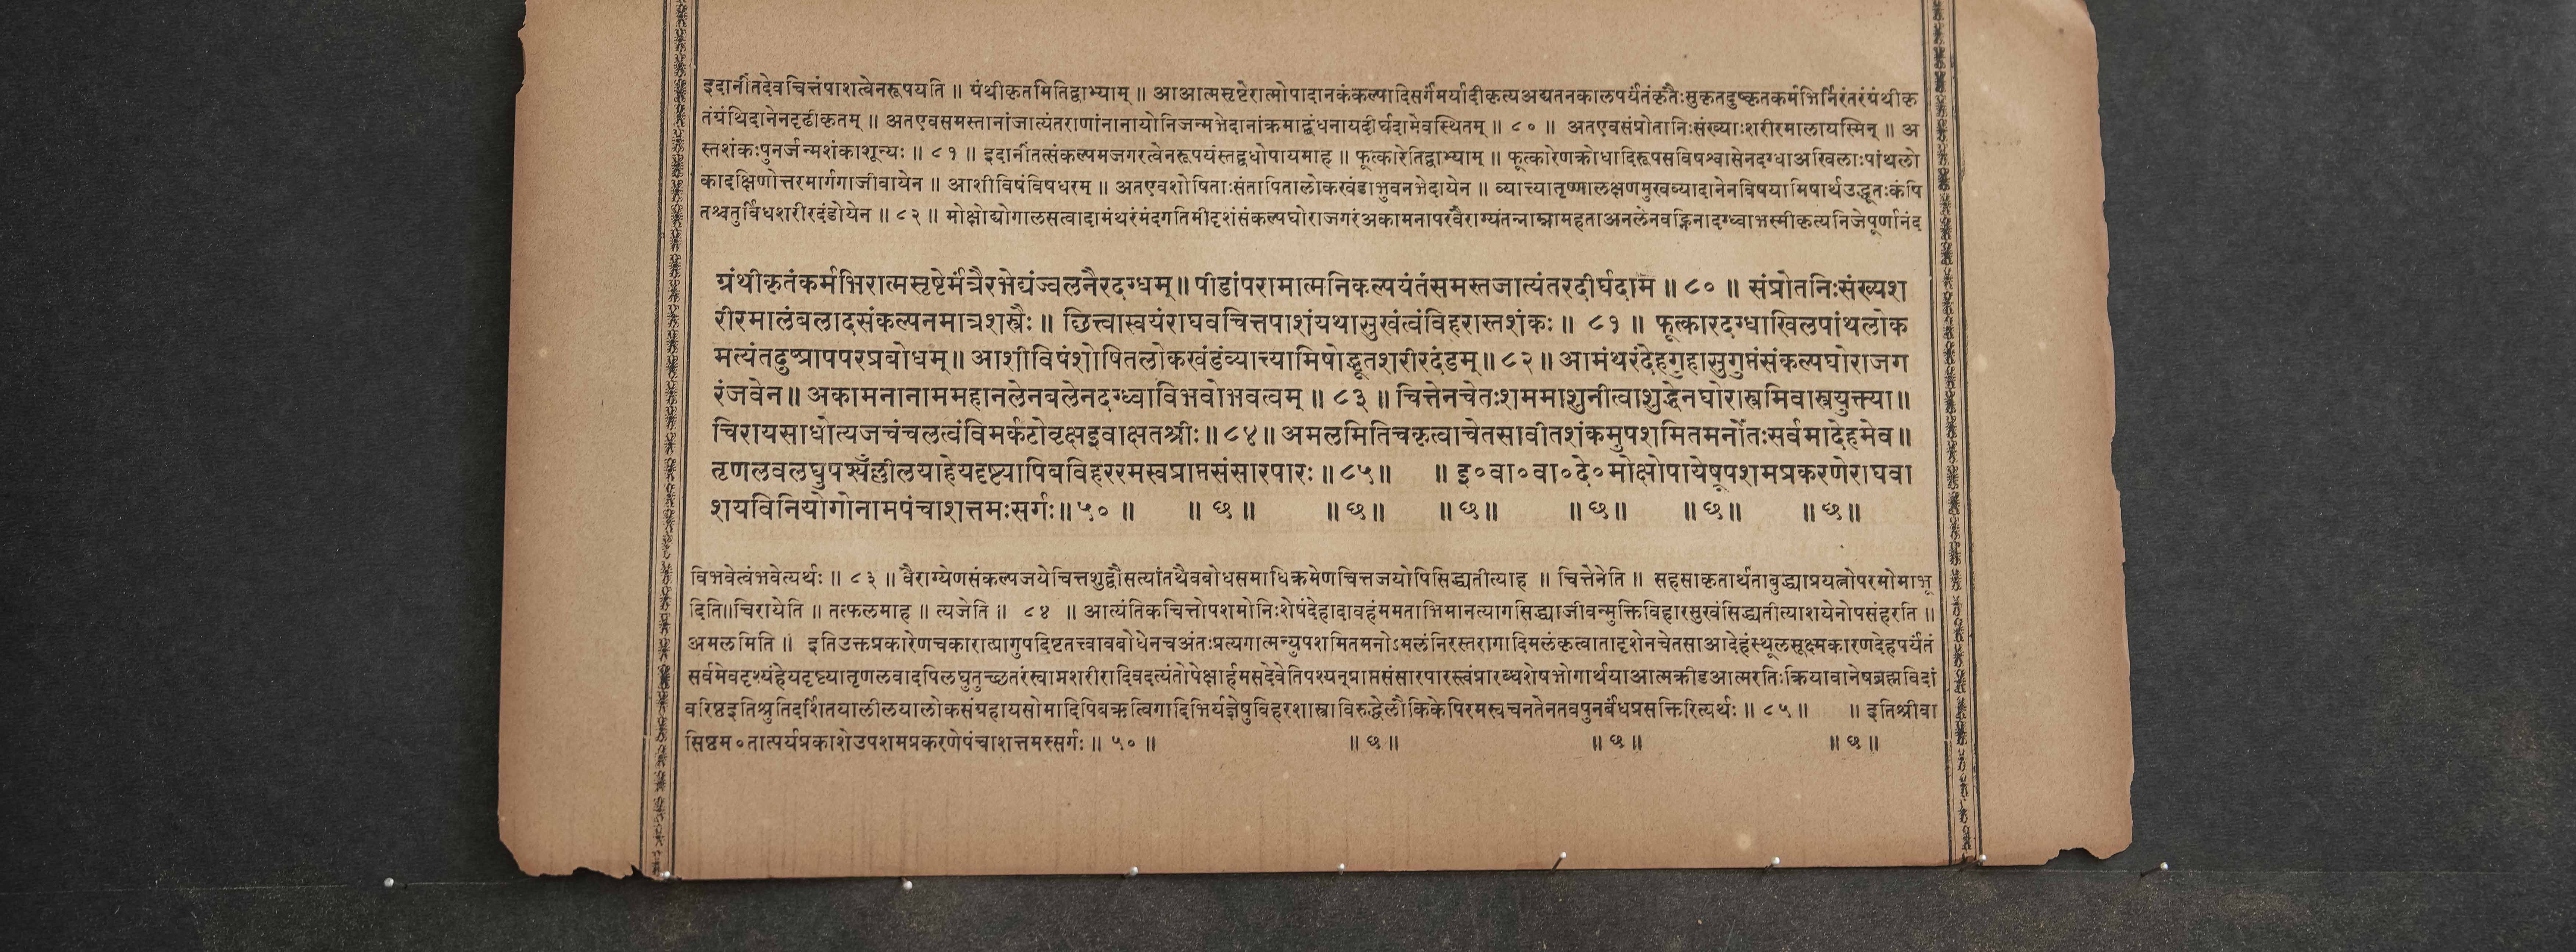 इदानींतदेवचित्तंपाशत्वेनरूपयति ॥ ग्रंथीकृतमितिद्वाभ्याम् ॥ आआत्मसृष्टेरात्मोपादानकंकल्पादिसर्गमर्यादीकृत्यअद्यतनकालपर्यंतंकृतैःसुकृतदुष्कृतकर्मभिर्निरंतरंग्रंथीकृ
तंग्रंथिदानेनदृढीकृतम् ॥ अतएवसमस्तानांजात्यंतराणांनानायोनिजन्मभेदानांक्रमाद्बंधनायदीर्घदामेवस्थितम् ॥ ८० ॥ अतएवसंप्रोतानिःसंख्याःशरीरमालायस्मिन् ॥ अ
स्तशंकःपुनर्जन्मशंकाशून्यः ॥ ८१ ॥ इदानींतत्संकल्पमजगरत्वेनरूपयंस्तद्वधोपायमाह ॥ फूत्कारेतिद्वाभ्याम् ॥ फूत्कारेणक्रोधादिरूपसविषश्वासेनदग्धाअखिलाःपांथलो
कादक्षिणोत्तरमार्गगाजीवायेन ॥ आशीविषंविषधरम् ॥ अतएवशोषिताःसंतापितालोकखंडाभुवनभेदायेन ॥ व्यात्त्यातृष्णालक्षणमुखव्यादानेनविषयामिषार्थउद्धूतःकंपि
तश्चतुर्विधशरीरदंडोयेन ॥ ८२ ॥ मोक्षोद्योगालसत्वादामंथरंमंदगतिमीदृशंसंकल्पघोराजगरंअकामनापरवैराग्यंतन्नाम्नामहताअनलेनवह्निनादग्ध्वाभस्मीकृत्यनिजेपूर्णानंद
ग्रंथीकृतंकर्मभिरात्मसृष्टेर्मंत्रैरभेद्यंज्वलनैरदग्धम् ॥ पीडांपरामात्मनिकल्पयंतंसमस्तजात्यंतरदीर्घदाम ॥ ८० ॥ संप्रोतनिःसंख्यश
रीरमालंबलादसंकल्पनमात्रशस्त्रैः ॥ छित्त्वास्वयंराघवचित्तपाशंयथासुखंत्वंविहरास्तशंकः ॥ ८१ ॥ फूत्कारदग्धाखिलपांथलोक
मत्यंतदुष्प्रापपरप्रबोधम् ॥ आशीविषंशोषितलोकखंडंव्यात्त्यामिषोद्धूतशरीरदंडम् ॥ ८२ ॥ आमंथरंदेहगुहासुगुप्तंसंकल्पघोराजग
रंजवेन ॥ अकामनानाममहानलेनबलेनदग्ध्वाविभवोभवत्वम् ॥ ८३ ॥ चित्तेनचेतःशममाशुनीत्वाशुद्धेनघोरास्त्रमिवास्त्रयुक्त्या ॥
चिरायसाधोत्यजचंचलत्वंविमर्कटोवृक्षइवाक्षतश्रीः ॥ ८४ ॥ अमलमितिचकृत्वाचेतसावीतशंकमुपशमितमनोंतःसर्वमादेहमेव ॥
तृणलवलघुपश्यँल्लीलयाहेयदृष्ट्यापिबविहररमस्वप्राप्तसंसारपारः ॥ ८५ ॥ ॥ इ॰वा॰वा॰दे॰मोक्षोपायेषूपशमप्रकरणेराघवा
शयविनियोगोनामपंचाशत्तमःसर्गः ॥ ५० ॥ ॥ छ ॥ ॥ छ ॥ ॥ छ ॥ ॥ छ ॥ ॥ छ ॥ ॥ छ ॥
विभवेत्वंभवेत्यर्थः ॥ ८३ ॥ वैराग्येणसंकल्पजयेचित्तशुद्धौसत्यांतथैवबोधसमाधिक्रमेणचित्तजयोपिसिद्ध्यतीत्याह ॥ चित्तेनेति ॥ सहसाकृतार्थताबुद्ध्याप्रयत्नोपरमोमाभू
दिति॥चिरायेति ॥ तत्फलमाह ॥ त्यजेति ॥ ८४ ॥ आत्यंतिकचित्तोपशमोनिःशेषंदेहादावहंममताभिमानत्यागसिद्ध्याजीवन्मुक्तिविहारसुखंसिद्ध्यतीत्याशयेनोपसंहरति ॥
अमलमिति ॥ इतिउक्तप्रकारेणचकारात्प्रागुपदिष्टतत्त्वावबोधेनचअंतःप्रत्यगात्मन्युपशमितमनोऽमलंनिरस्तरागादिमलंकृत्वातादृशेनचेतसाआदेहंस्थूलसूक्ष्मकारणदेहपर्यंतं
सर्वमेवदृश्यंहेयदृष्ट्यातृणलवादपिलघुतुच्छतरंस्वाप्नशरीरादिवदत्यंतोपेक्षार्हमसदेवेतिपश्यन्प्राप्तसंसारपारस्त्वंप्रारब्धशेषभोगार्थयाआत्मक्रीडआत्मरतिःक्रियावानेषब्रह्मविदां
वरिष्ठइतिश्रुतिदर्शितयालीलयालोकसंग्रहायसोमादिपिबऋत्विगादिभिर्यज्ञेषुविहरशास्त्राविरुद्धेलौकिकेपिरमस्वचनतेनतवपुनर्बंधप्रसक्तिरित्यर्थः ॥ ८५ ॥ ॥ इतिश्रीवा
सिष्ठम॰तात्पर्यप्रकाशेउपशमप्रकरणेपंचाशत्तमस्सर्गः ॥ ५० ॥ ॥ छ ॥ ॥ छ ॥ ॥ छ ॥